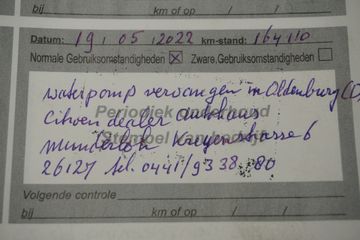 bij km of op / /
Datum: 19 / 05 / 2022 km-stand: 164110
Normale Gebruiksomstandigheden ☒ Zware Gebruiksomstandigheden ☐
waterpomp vervangen in Oldenburg (D)
Periodiek onderhoud
Citroen dealer autohaus
Stempel van bedrijf
Munderloh Kreyenstrasse 6
26127 tel. 0441/9338-80
Volgende controle
bij km of op / /